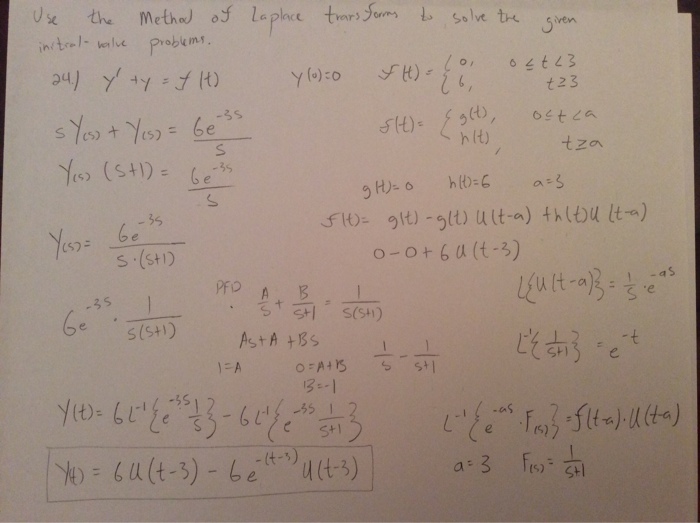 Use the Method of Laplace transforms to solve the given
initial-value problems.
24.) y' + y = f(t) y(0)=0 f(t) = { 0, 0 ≤ t < 3
6, t ≥ 3
sY(s) + Y(s) = 6e^{-3s}/s
f(t) = { g(t), 0 ≤ t < a
h(t), t ≥ a
Y(s) (s+1) = 6e^{-3s}/s
g(t)=0 h(t)=6 a=3
f(t) = g(t) - g(t) U(t-a) + h(t) U(t-a)
Y(s) = 6e^{-3s}/(s·(s+1))
0 - 0 + 6U(t-3)
L{U(t-a)} = 1/s · e^{-as}
6e^{-3s} · 1/(s(s+1))
PFD · A/s + B/(s+1) = 1/(s(s+1))
As + A + Bs
1=A 0=A+B
B=-1
1/s - 1/(s+1)
L^{-1}{1/(s+1)} = e^{-t}
Y(t) = 6L^{-1}{e^{-3s} 1/s} - 6L^{-1}{e^{-3s} 1/(s+1)}
L^{-1}{e^{-as} · F(s)} = f(t-a)·U(t-a)
Y(t) = 6U(t-3) - 6e^{-(t-3)} U(t-3)
a=3 F(s) = 1/(s+1)